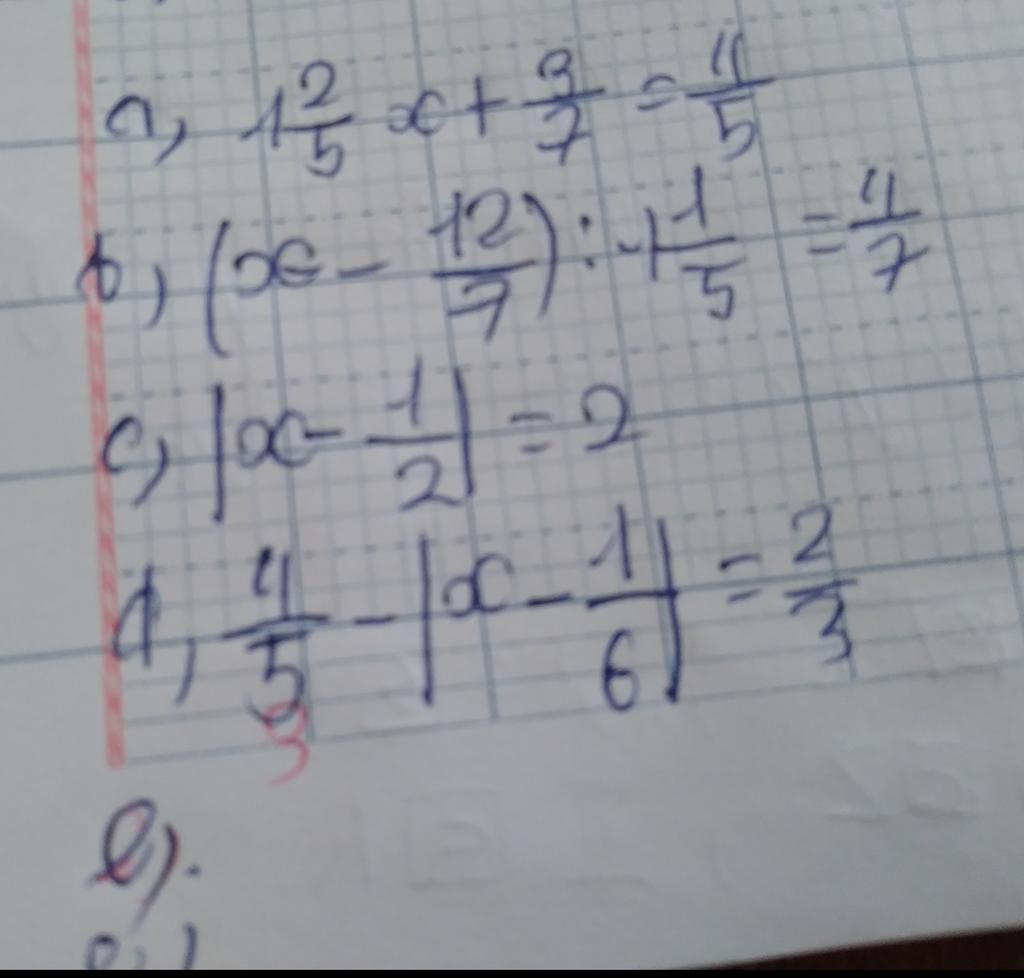 a, 1 2/5 x + 3/7 = 4/5
b, (x - 12/7) : 1 1/5 = 4/7
c, |x - 1/2| = 2
d, 4/5 - |x - 1/6| = 2/3
3
e).